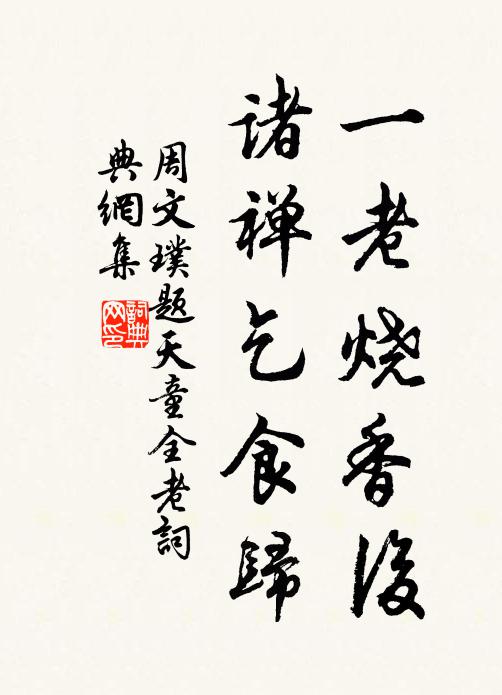 一老烧香後
诸禅乞食歸
周文璞题天童全老詞
典網集
詞典
网印